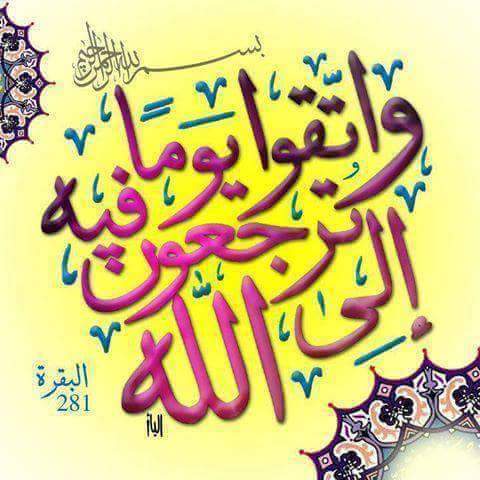 بسم الله الرحمن الرحيم
واتقوا يومًا
ترجعون فيه
إلى الله
البقرة
281